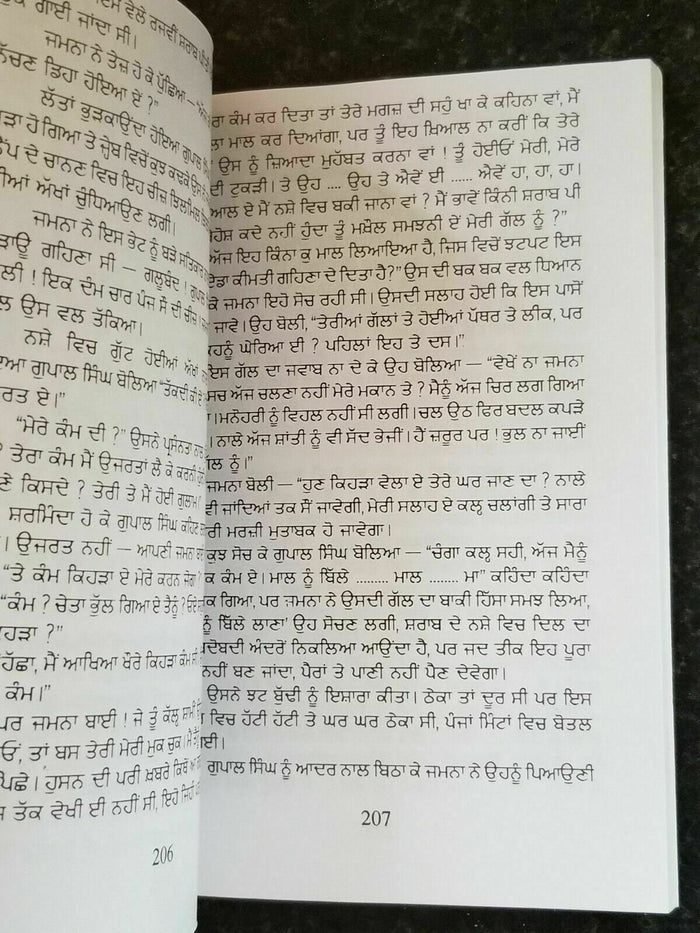 ਗਾਈ ਜਾਂਦਾ ਸੀ।
ਜਮਨਾ ਨੇ ਤੇਜ਼ ਹੋ ਕੇ ਪੁੱਛਿਆ —
ਨੱਚਣ ਡਿਹਾ ਹੋਇਆ ਏਂ ?”
ਲੱਤਾਂ ਭੁੜਕਾਉਂਦਾ ਹੋਇਆ ਗੁਪਾਲ
ਹੋ ਗਿਆ ਤੇ ਜੇਬ ਵਿਚੋਂ ਕੁਝ ਕਢਕੇ ਉਸ
ਦੇ ਚਾਨਣ ਵਿਚ ਇਹ ਚੀਜ਼ ਝਿਲਮਿਲ
ਅੱਖਾਂ ਚੁੰਧਿਆਉਣ ਲਗੀ।
ਜਮਨਾ ਨੇ ਇਸ ਭੇਟ ਨੂੰ ਬੜੇ
ਗਹਿਣਾ ਸੀ — ਗਲੂਬੰਦ !
! ਇਕ ਦੰਮ ਚਾਰ ਪੰਜ ਸੌ ਦੀ ਚੀਜ਼ !
ਉਸ ਵਲ ਤੱਕਿਆ।
ਨਸ਼ੇ ਵਿਚ ਗੁੱਟ ਹੋਈਆਂ ਅੱਖਾਂ
ਗੁਪਾਲ ਸਿੰਘ ਬੋਲਿਆ “ਤੱਕਦੀ ਕੀ ਏਂ
ਏ।”
“ਮੇਰੇ ਕੰਮ ਦੀ ?” ਉਸਨੇ ਪ੍ਰਸੰਨਤਾ ਨਾਲ
? ਤੇਰਾ ਕੰਮ ਮੈਂ ਉਜਰਤਾਂ ਲੈ ਕੇ ਕਰਨੀ
ਕਿਸਦੇ ? ਤੇਰੀ ਤੇ ਮੈਂ ਹੋਈ ਗੁਲਾਮ
ਸ਼ਰਮਿੰਦਾ ਹੋ ਕੇ ਗੁਪਾਲ ਸਿੰਘ ਕਹਿਣ
। ਉਜਰਤ ਨਹੀਂ — ਆਪਣੀ ਜਮਨਾ
“ਤੇ ਕੰਮ ਕਿਹੜਾ ਏ ਮੇਰੇ ਕਰਨ ਜੋਗਾ ?
“ਕੰਮ ? ਚੇਤਾ ਭੁੱਲ ਗਿਆ ਏ ਤੈਨੂੰ ?
ਕਿਹੜਾ ?”
ਮੈਂ ਆਖਿਆ ਖੌਰੇ ਕਿਹੜਾ ਕੰਮ
ਕੰਮ।”
ਪਰ ਜਮਨਾ ਬਾਈ ! ਜੇ ਤੂੰ ਕੱਲ੍ਹ ਸ਼ਾਮੀਂ
ਤਾਂ ਬਸ ਤੇਰੀ ਮੇਰੀ ਮੁਕ ਚੁਕ।
ਪਿਛੇ। ਹੁਸਨ ਦੀ ਪਰੀ ਖ਼ਬਰੇ ਕਿਥੋਂ
ਤੱਕ ਵੇਖੀ ਈ ਨਹੀਂ ਸੀ, ਇਹੋ ਜਿਹੀ
206
ਕੰਮ ਕਰ ਦਿਤਾ ਤਾਂ ਤੇਰੇ ਮਗਜ਼ ਦੀ ਸਹੁੰ ਖਾ ਕੇ ਕਹਿਨਾ ਵਾਂ, ਮੈਂ
ਮਾਲ ਕਰ ਦਿਆਂਗਾ, ਪਰ ਤੂੰ ਇਹ ਖ਼ਿਆਲ ਨਾ ਕਰੀਂ ਕਿ ਤੇਰੇ
ਉਸ ਨੂੰ ਜ਼ਿਆਦਾ ਮੁਹੱਬਤ ਕਰਨਾ ਵਾਂ ! ਤੂੰ ਹੋਈਓਂ ਮੇਰੀ, ਮੇਰੇ
ਦੀ ਟੁਕੜੀ। ਤੇ ਉਹ .... ਉਹ ਤੇ ਐਵੇਂ ਈ ...... ਐਵੇਂ ਹਾ, ਹਾ, ਹਾ।
ਏ ਮੈਂ ਨਸ਼ੇ ਵਿਚ ਬਕੀ ਜਾਨਾ ਵਾਂ ? ਮੈਂ ਭਾਵੇਂ ਕਿੰਨੀ ਸ਼ਰਾਬ ਪੀ
ਕਦੇ ਨਹੀਂ ਹੁੰਦਾ ਤੂੰ ਮਖ਼ੌਲ ਸਮਝਨੀ ਏਂ ਮੇਰੀ ਗੱਲ ਨੂੰ ?”
ਅੱਜ ਇਹ ਕਿੰਨਾ ਕੁ ਮਾਲ ਲਿਆਇਆ ਹੈ, ਜਿਸ ਵਿਚੋਂ ਝਟਪਟ ਇਸ
ਏਡਾ ਕੀਮਤੀ ਗਹਿਣਾ ਦੇ ਦਿਤਾ ਹੈ?” ਉਸ ਦੀ ਬਕ ਬਕ ਵਲ ਧਿਆਨ
ਕੇ ਜਮਨਾ ਇਹੋ ਸੋਚ ਰਹੀ ਸੀ। ਉਸਦੀ ਸਲਾਹ ਹੋਈ ਕਿ ਇਸ ਪਾਸੋਂ
ਜਾਵੇ। ਉਹ ਬੋਲੀ, “ਤੇਰੀਆਂ ਗੱਲਾਂ ਤੇ ਹੋਈਆਂ ਪੱਥਰ ਤੇ ਲੀਕ, ਪਰ
ਘੇਰਿਆ ਈ ? ਪਹਿਲਾਂ ਇਹ ਤੇ ਦਸ।”
ਇਸ ਗੱਲ ਦਾ ਜਵਾਬ ਨਾ ਦੇ ਕੇ ਉਹ ਬੋਲਿਆ — “ਵੇਖੇਂ ਨਾ ਜਮਨਾ
ਸਚ ਅੱਜ ਚਲਣਾ ਨਹੀਂ ਮੇਰੇ ਮਕਾਨ ਤੇ ? ਮੈਨੂੰ ਅੱਜ ਚਿਰ ਲਗ ਗਿਆ
। ਮਨੋਹਰੀ ਨੂੰ ਵਿਹਲ ਨਹੀਂ ਸੀ ਲਗੀ। ਚਲ ਉਠ ਫਿਰ ਬਦਲ ਕਪੜੇ
। ਨਾਲੇ ਅੱਜ ਸ਼ਾਂਤੀ ਨੂੰ ਵੀ ਸੱਦ ਭੇਜੀਂ। ਹੈਂ ਜ਼ਰੂਰ ਪਰ ! ਭੁਲ ਨਾ ਜਾਈਂ
ਨੂੰ।”
ਜਮਨਾ ਬੋਲੀ — “ਹੁਣ ਕਿਹੜਾ ਵੇਲਾ ਏ ਤੇਰੇ ਘਰ ਜਾਣ ਦਾ ? ਨਾਲੇ
ਵੀ ਜਾਂਦਿਆਂ ਤਕ ਸੌਂ ਜਾਵੇਗੀ, ਮੇਰੀ ਸਲਾਹ ਏ ਕਲ੍ਹ ਚਲਾਂਗੀ ਤੇ ਸਾਰਾ
ਮਰਜ਼ੀ ਮੁਤਾਬਕ ਹੋ ਜਾਵੇਗਾ।
ਕੁਝ ਸੋਚ ਕੇ ਗੁਪਾਲ ਸਿੰਘ ਬੋਲਿਆ — “ਚੰਗਾ ਕਲ੍ਹ ਸਹੀ, ਅੱਜ ਮੈਨੂੰ
ਕੰਮ ਏ। ਮਾਲ ਨੂੰ ਬਿੱਲੇ ......... ਮਾਲ ........ ਮਾ” ਕਹਿੰਦਾ ਕਹਿੰਦਾ
ਗਿਆ, ਪਰ ਜਮਨਾ ਨੇ ਉਸਦੀ ਗੱਲ ਦਾ ਬਾਕੀ ਹਿੱਸਾ ਸਮਝ ਲਿਆ,
ਨੂੰ ਬਿੱਲੇ ਲਾਣਾ’ ਉਹ ਸੋਚਣ ਲਗੀ, ਸ਼ਰਾਬ ਦੇ ਨਸ਼ੇ ਵਿਚ ਦਿਲ ਦਾ
ਅੰਦਰੋਂ ਨਿਕਲਿਆ ਆਉਂਦਾ ਹੈ, ਪਰ ਜਦ ਤੀਕ ਇਹ ਪੂਰਾ
ਨਹੀਂ ਬਣ ਜਾਂਦਾ, ਪੈਰਾਂ ਤੇ ਪਾਣੀ ਨਹੀਂ ਪੈਣ ਦੇਵੇਗਾ।
ਉਸਨੇ ਝਟ ਬੁੱਢੀ ਨੂੰ ਇਸ਼ਾਰਾ ਕੀਤਾ। ਠੇਕਾ ਤਾਂ ਦੂਰ ਸੀ ਪਰ ਇਸ
ਵਿਚ ਹੱਟੀ ਹੱਟੀ ਤੇ ਘਰ ਘਰ ਠੇਕਾ ਸੀ, ਪੰਜਾਂ ਮਿੰਟਾਂ ਵਿਚ ਬੋਤਲ
ਗੁਪਾਲ ਸਿੰਘ ਨੂੰ ਆਦਰ ਨਾਲ ਬਿਠਾ ਕੇ ਜਮਨਾ ਨੇ ਉਹਨੂੰ ਪਿਆਉਣੀ
207